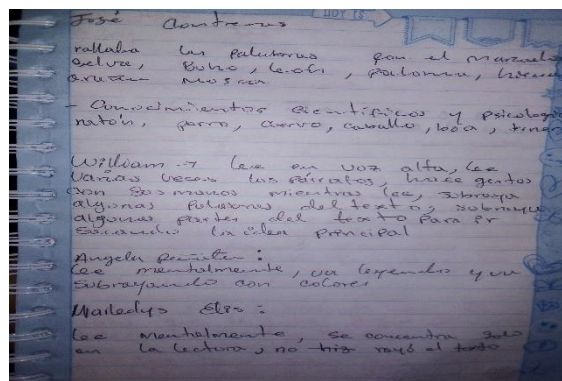 HOY ES
José Contreras
rallaba las palabras con el
selva, Buho, león, paloma,
mosca
- Conocimientos científicos y psicologi
ratón, perro, cuervo, caballo, boa,
William → Lee en voz alta, lee
varias veces los párrafos, hace gestos
con sus manos mientras lee, subraya
algunas palabras del texto, subraya
algunas partes del texto para ir
sacando la idea principal
Angela :
Lee mentalmente, va leyendo y va
subrayando con colores
Mailedys Elis :
Lee mentalmente, se concentra solo
en la lectura, no hiz rayó el texto